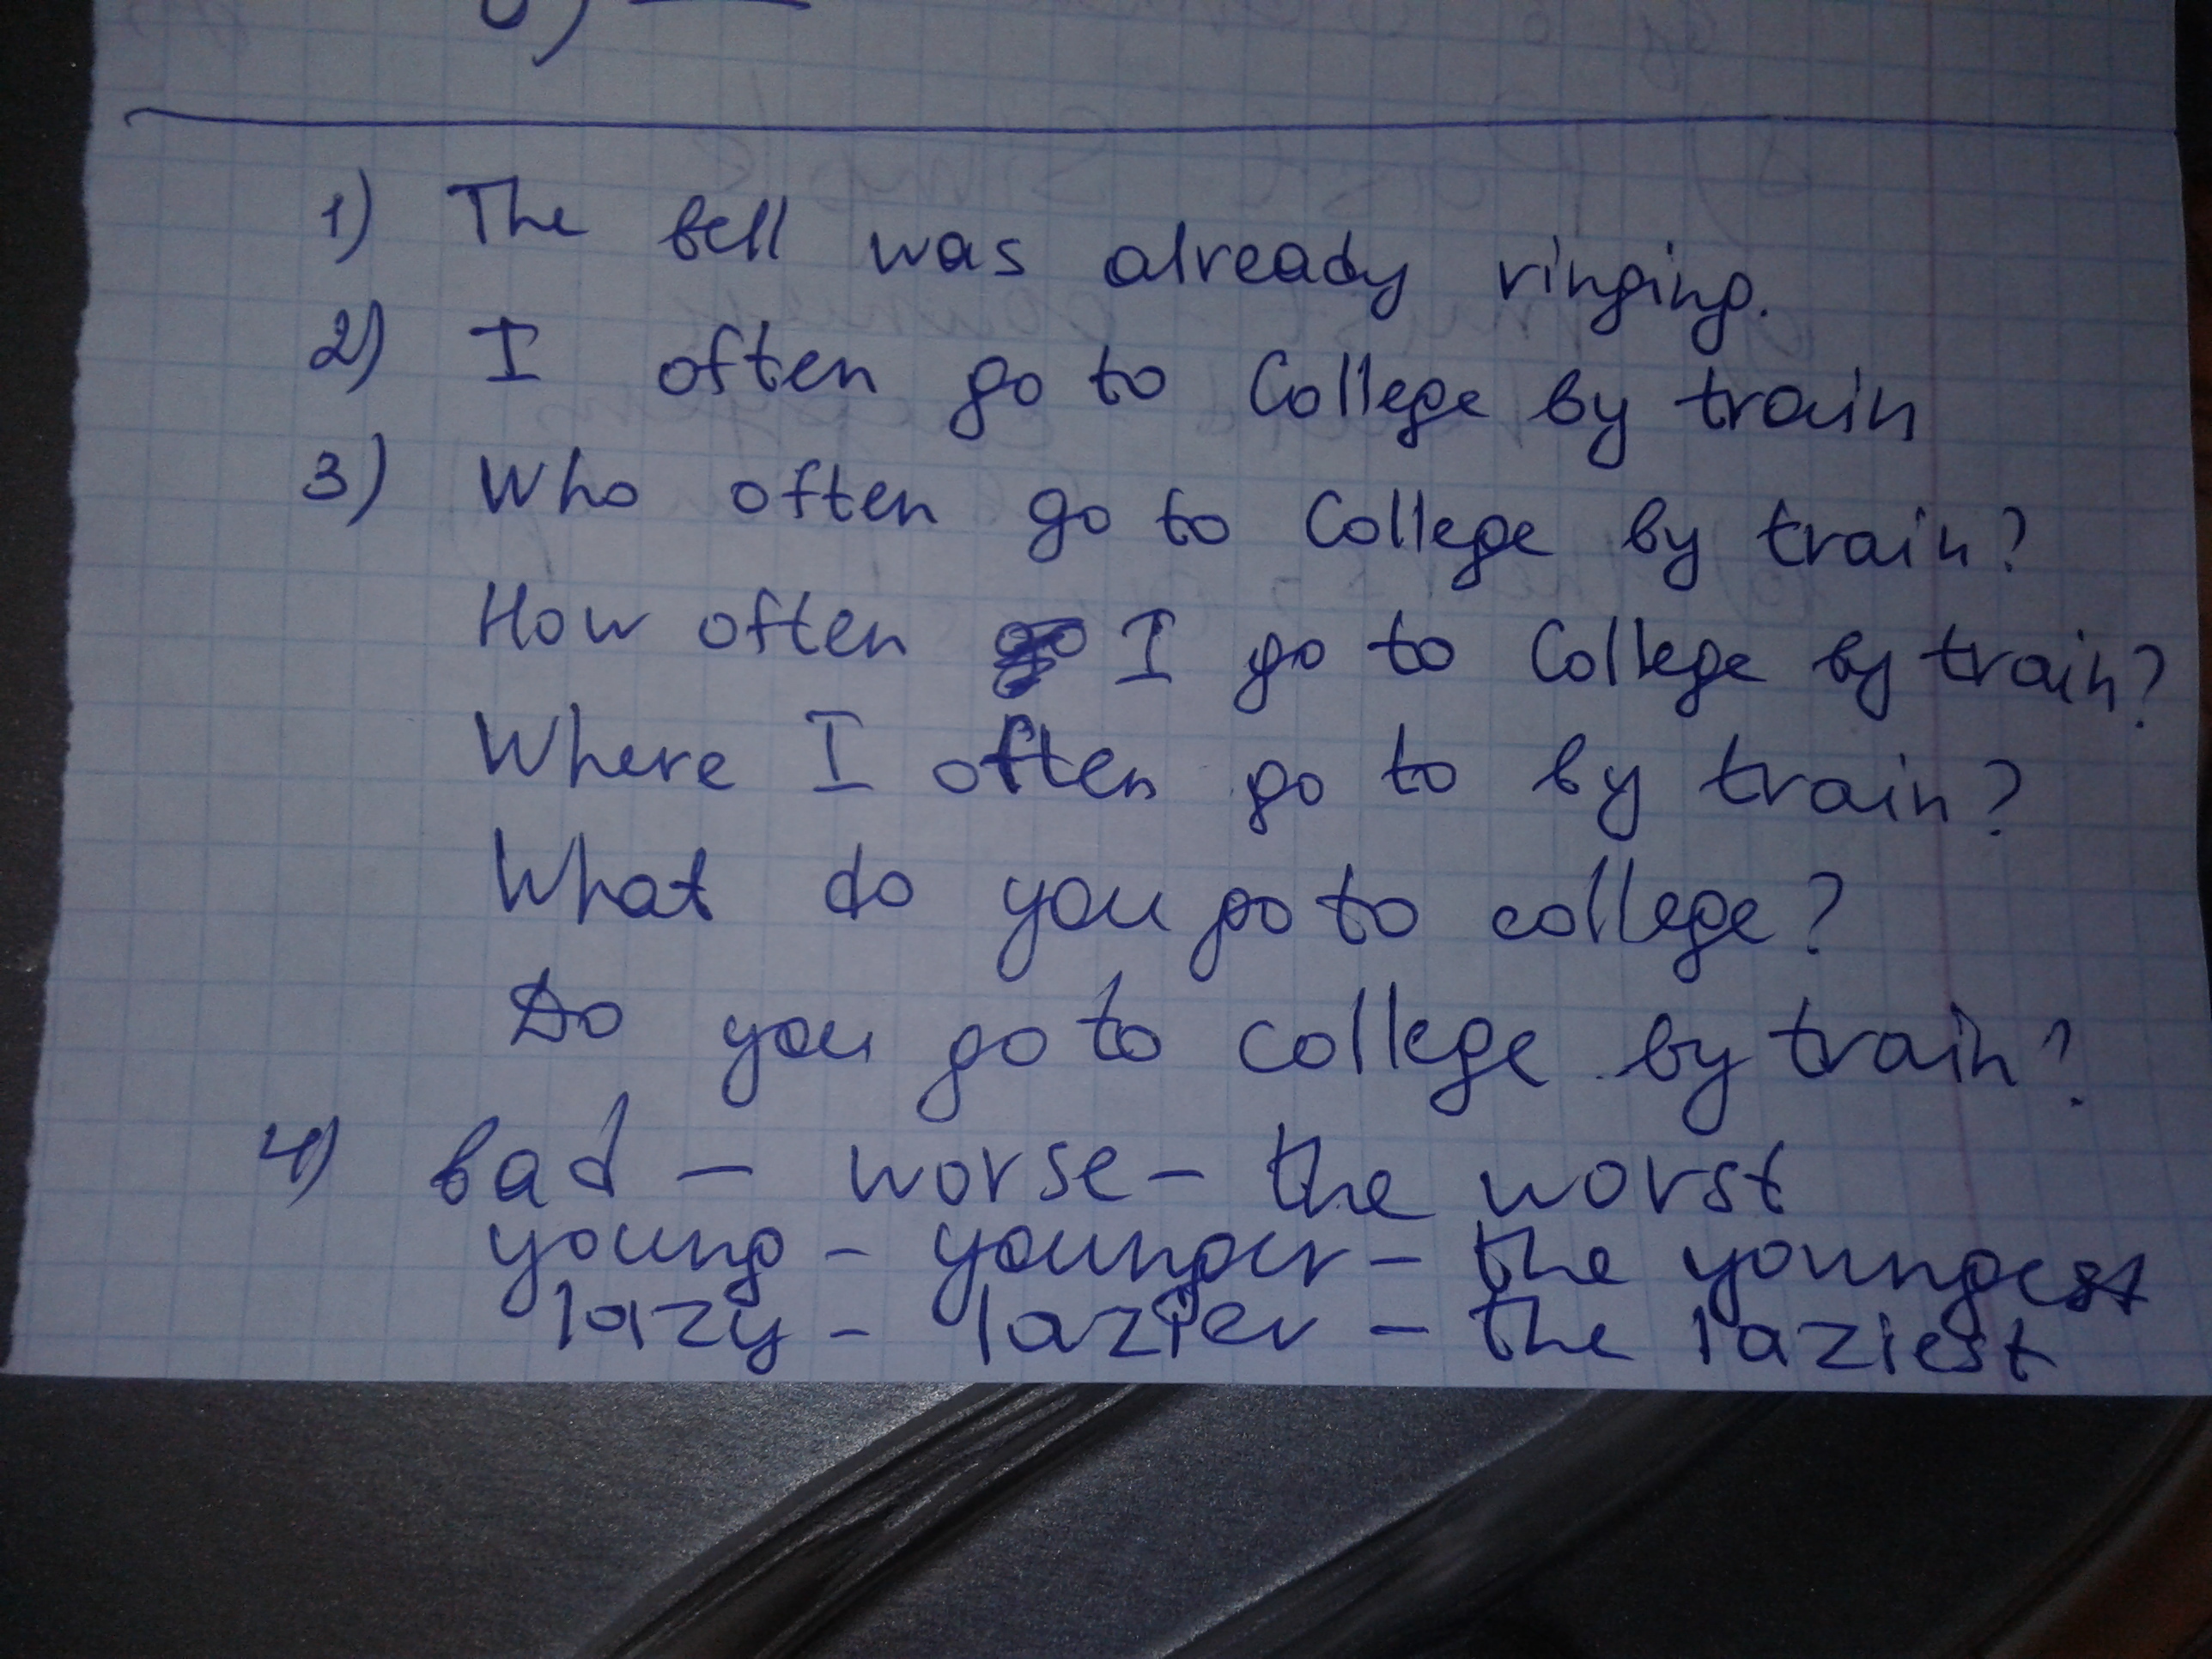 1) The bell was already ringing.
2) I often go to College by train
3) Who often go to College by train?
How often I go to College by train?
Where I often go to by train?
What do you go to college?
Do you go to college by train?
4) bad - worse - the worst
young - younger - the youngest
lazy - lazier - the laziest